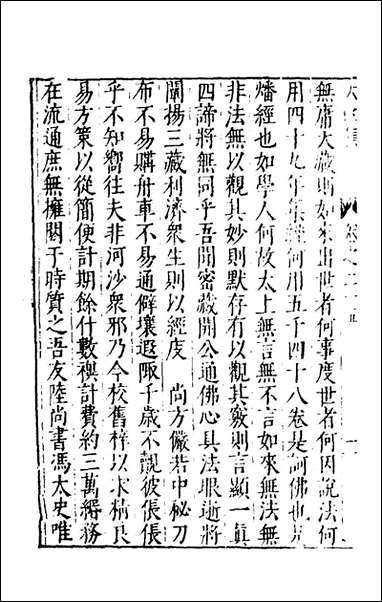 無庸大藏則如來出世者何事度世者何因說法何
用四十九年集經何用五千四十八卷是訶佛也是
燔經也如學人何故太上無言無不言如來無法無
非法無以觀其妙則默存有以觀其竅則言顯一真
四諦將無同乎吾聞密藏開公通佛心具法眼逝將
闡揚三藏利濟衆生則以經度 尚方儼若中秘刀
布不易購舟車不易通僻壤遐陬千歲不覩彼倀倀
乎不知嚮往夫非河沙衆邪乃今校舊梓以求精良
易方策以從簡便計期餘什數禩計費約三萬緡務
在流通庶無擁閼于時質之吾友陸尚書馮太史唯